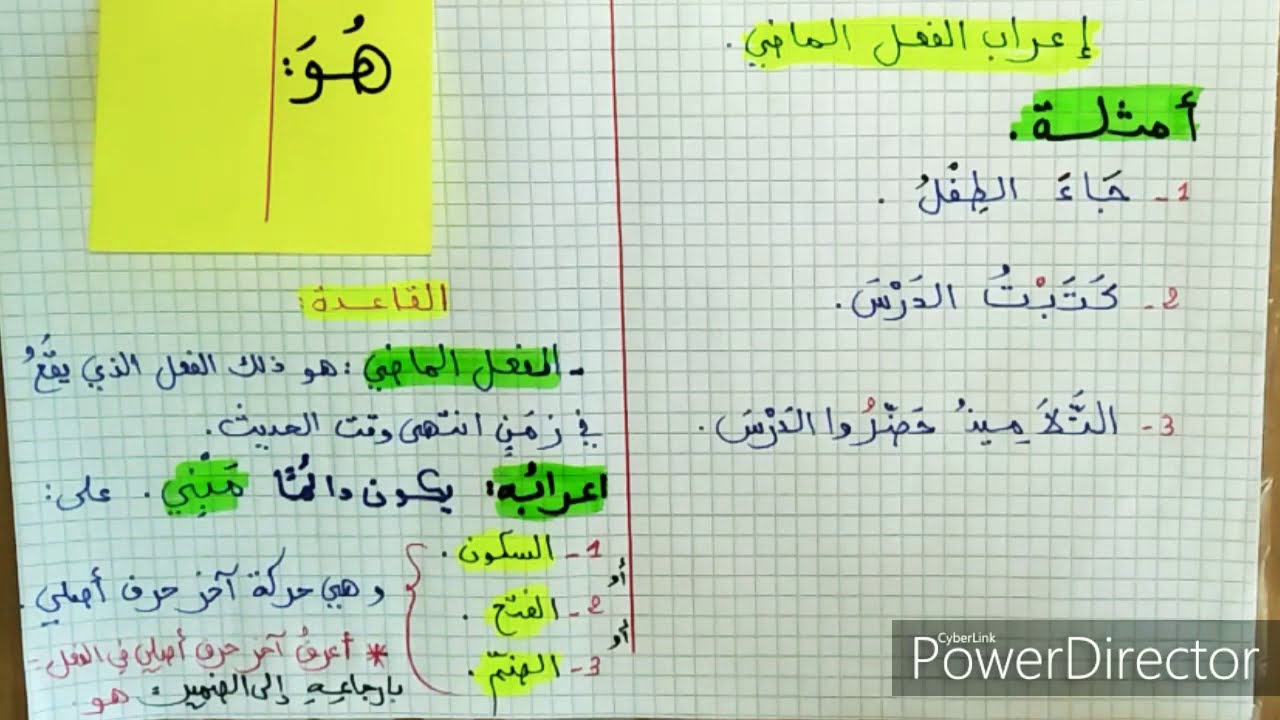 إعراب الفعل الماضي.
أمثلة.
1- جَاءَ الطِفْلُ.
2- كَتَبْتُ الدَرْسَ.
3- التَّلاَمِيذُ حَضَّرُوا الدَرْسَ.
هُوَ:
القاعدة:
- الفعل الماضي: هو ذلك الفعل الذي يقَعُ
في زمَنٍ انتهى وقت الحديث.
اعرابُه: يكون دائمًا مَبْنِي. على:
1- السكون.
أو
2- الفتح.
أو
3- الضمّ.
وهي حركة آخر حرف أصلي.
* أعرفُ آخر حرف أصلي في الفعل
بإرجاعه إلى الضمير: هو
CyberLink
PowerDirector